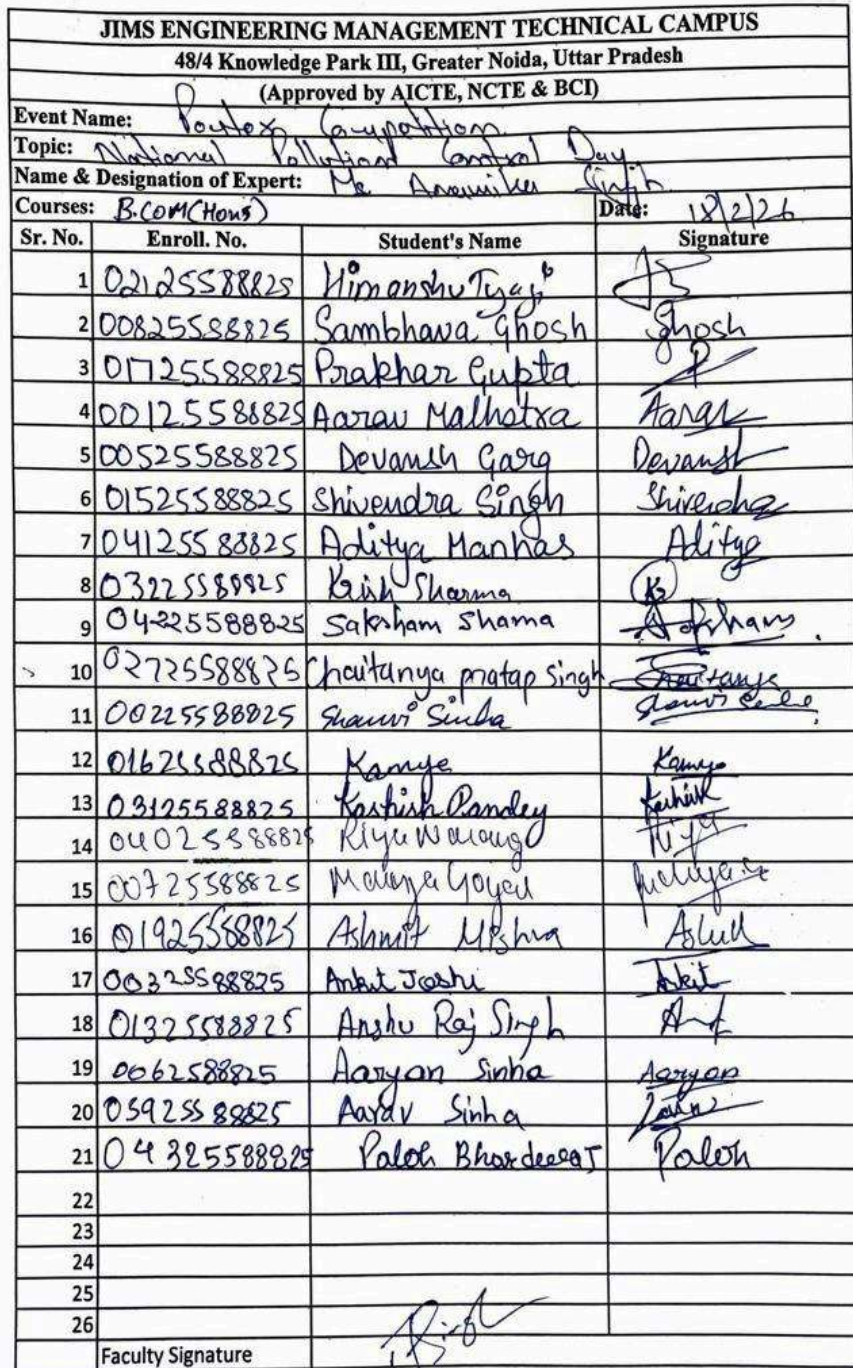 JIMS ENGINEERING MANAGEMENT TECHNICAL CAMPUS
48/4 Knowledge Park III, Greater Noida, Uttar Pradesh
(Approved by AICTE, NCTE & BCI)
Event Name: Poster Competition
Topic: National Pollution Control Day
Name & Designation of Expert: Ms Anamika Singh
Courses: B.COM(Hons) Date: 18/2/26
Sr. No. Enroll. No. Student's Name Signature
1 02125588825 Himanshu Tyagi
2 00825588825 Sambhava Ghosh Ghosh
3 01725588825 Prakhar Gupta
4 00125588825 Aarav Malhotra Aarav
5 00525588825 Devansh Garg Devansh
6 01525588825 Shivendra Singh Shivendra
7 04125588825 Aditya Manhas Aditya
8 03225588825 Krish Sharma
9 04225588825 Saksham Shama Saksham
10 02725588825 Chaitanya pratap singh Chaitanya
11 00225588825 Shanvi Sinha Shanvi
12 01625588825 Kamya Kamya
13 03125588825 Kashish Pandey Kashish
14 04025588825 Riya Riya
15 00725588825 Goyal
16 01925588825 Ashmit Mishra
17 00325588825 Ankit Joshi Ankit
18 01325588825 Anshu Raj Singh
19 0062588825 Aaryan Sinha Aaryan
20 03925588825 Aarav Sinha
21 04325588825 Palak Bhardwaj Palak
22
23
24
25
26
Faculty Signature